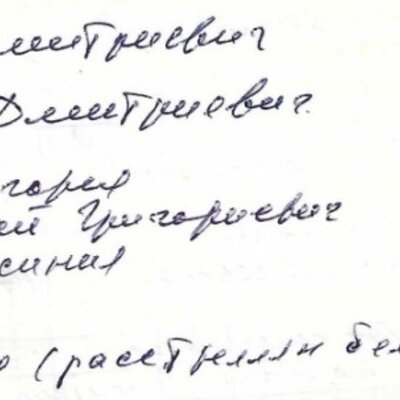 митриевич
Дмитриевич.
гория
ий Григориевич
синия
о (расстрелян бел